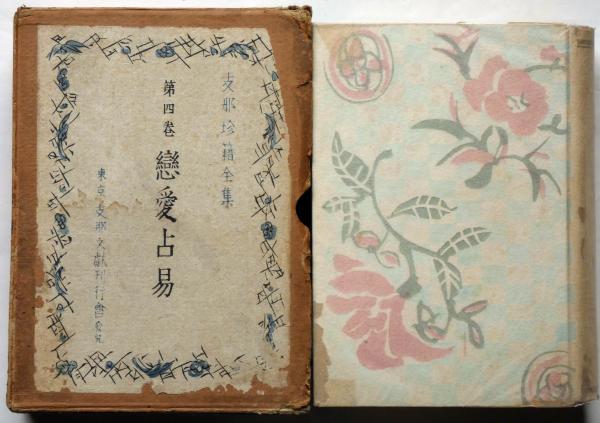 支那珍籍全集
第四卷 戀愛占易
東京・支那文獻刊行會発兌